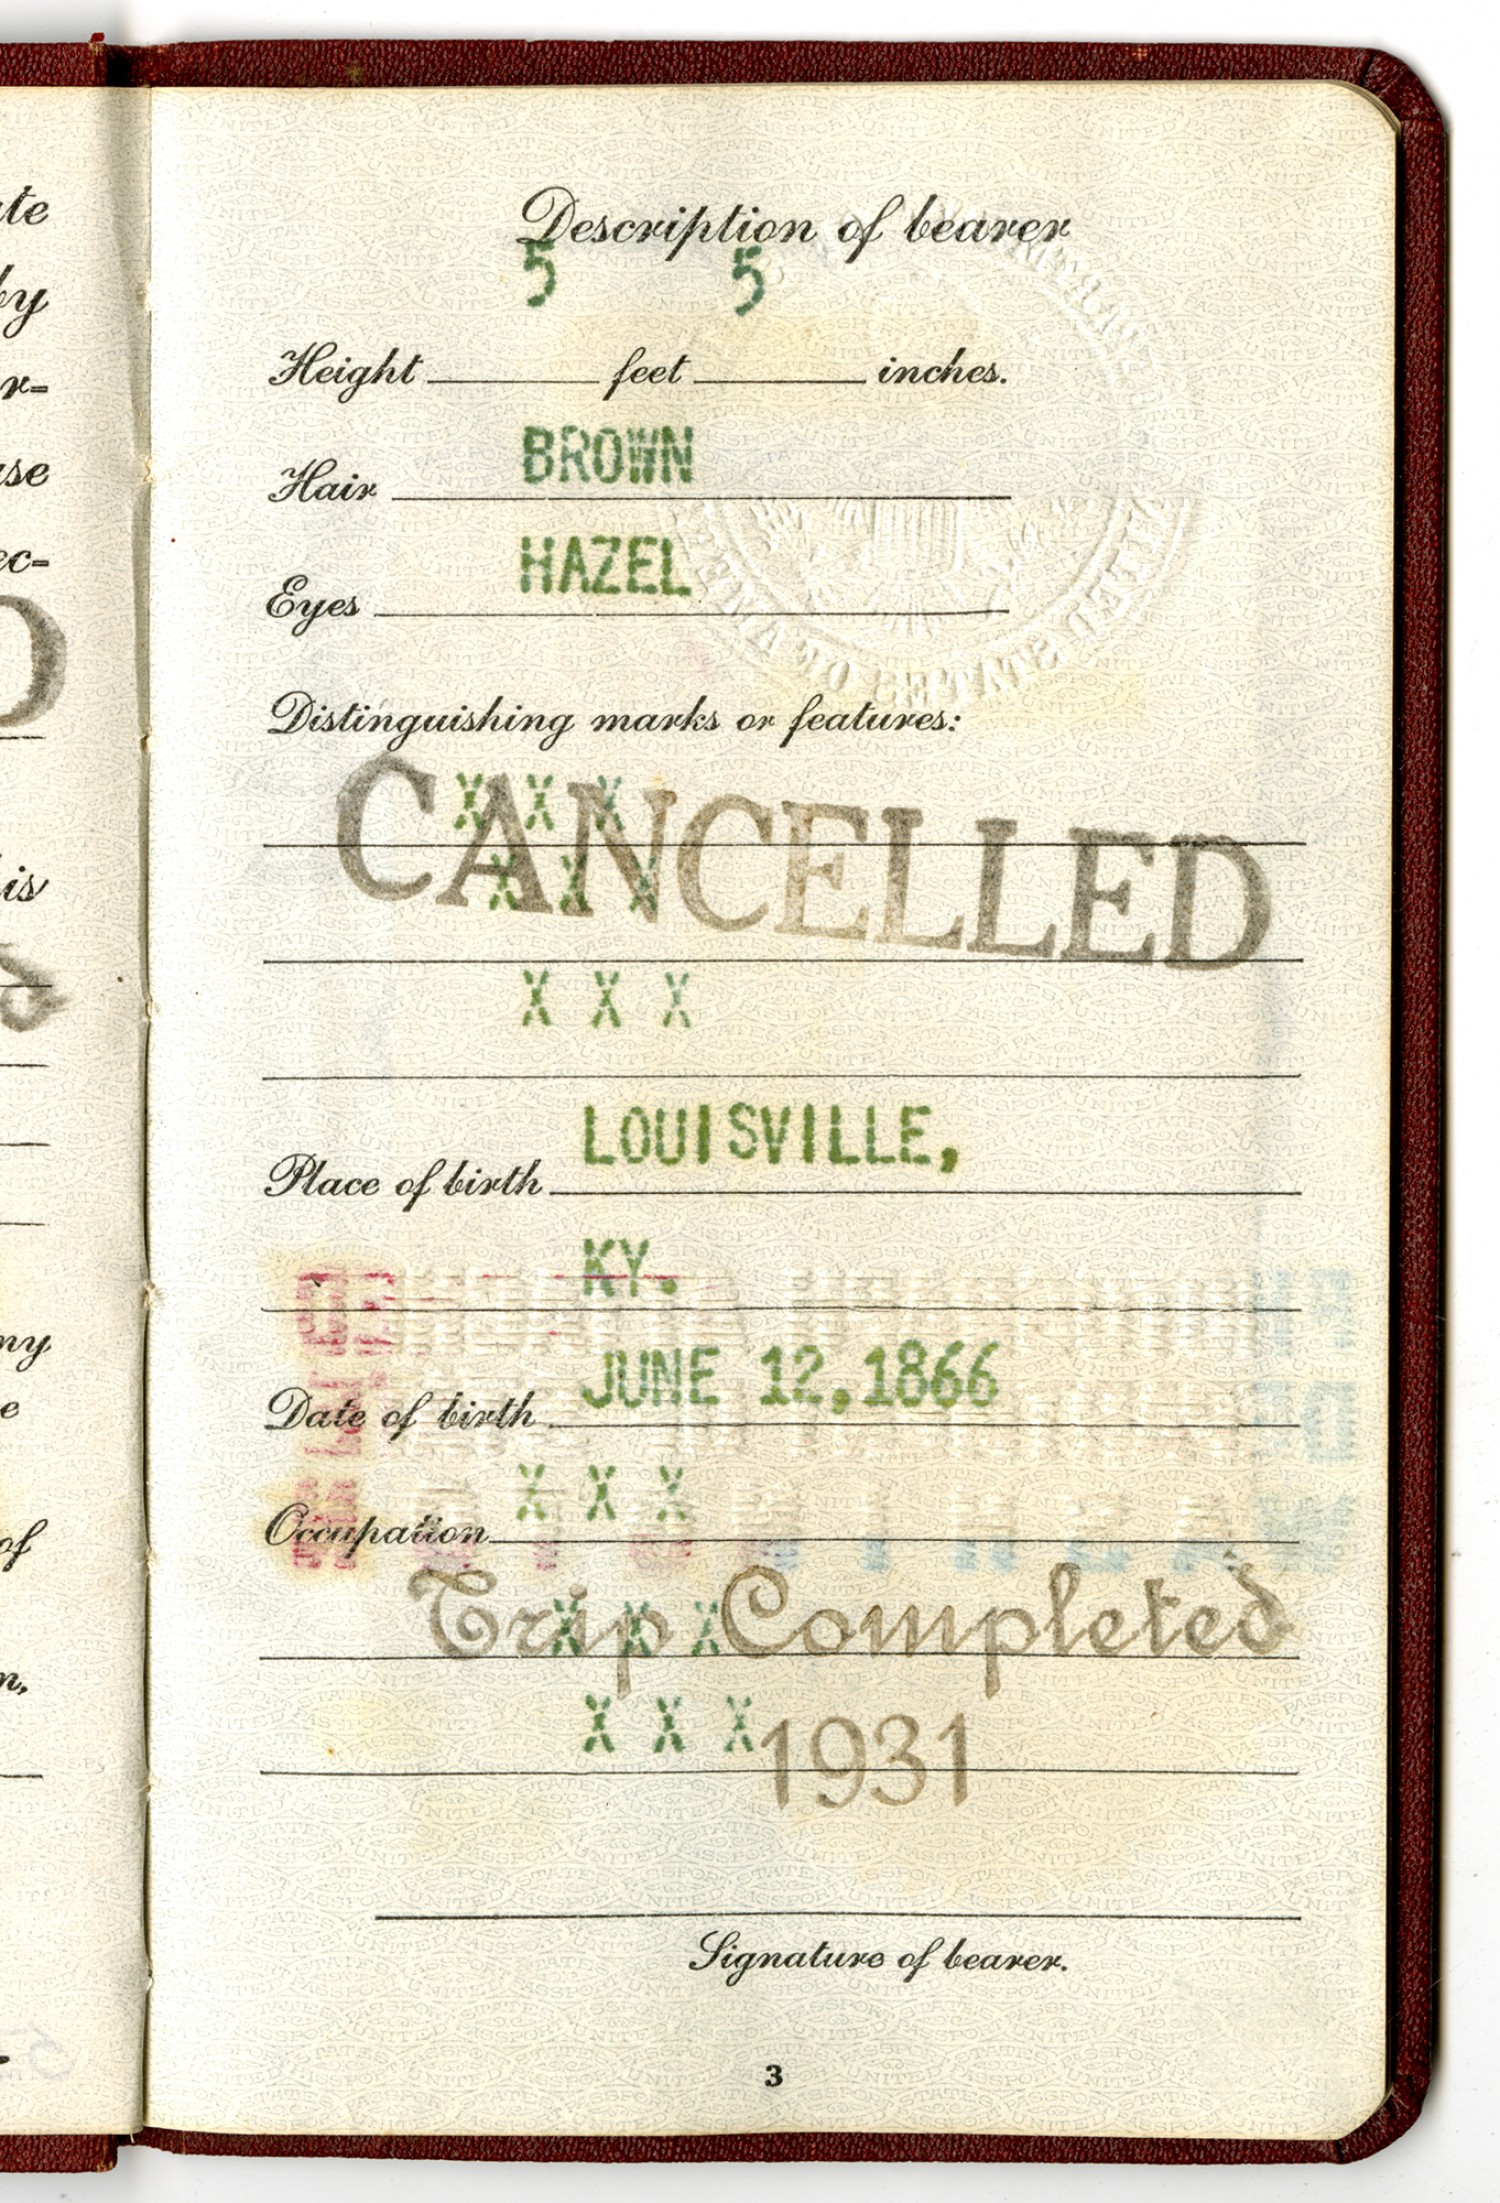 Description of bearer
5 5
Height feet inches.
BROWN
Hair
HAZEL
Eyes
Distinguishing marks or features:
X X X
CANCELLED
X X X
X X X
LOUISVILLE,
Place of birth
KY.
JUNE 12,1866
Date of birth
X X X
Occupation
Trip Completed
X X X
X X X
1931
Signature of bearer.
3
te
by
r=
se
ec=
D
is
ny
e
of
n,